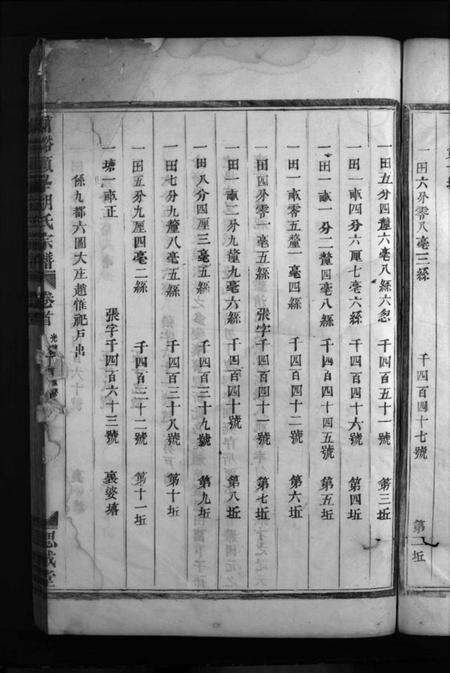 一田六分零八毫三絲 千四百四十七號 第二坵
一田五分四釐六毫八絲六忽 千四百五十一號 第三坵
一田一畝四分六厘七毫六絲 千四百四十六號 第四坵
一田一畝一分二釐四毫八絲 千四百四十四五號 第五坵
一田一畝零五釐一毫四絲 千四百四十二號 第六坵
一田四分零一毫五絲 張字千四百四十一號 第七坵
一田一畝二分九釐九毫六絲 千四百四十號 第八坵
一田八分四厘三毫五絲 千四百三十九號 第九坵
一田七分九釐八毫五絲 千四百三十八號 第十坵
一田五分九厘四毫二絲 千四百三十二號 第十一坵
一塘一畝正 張字千四百六十三號 裏婆塘
係九都六圖大庄趙惟祀戶出
氏宗譜 卷首 思誠堂